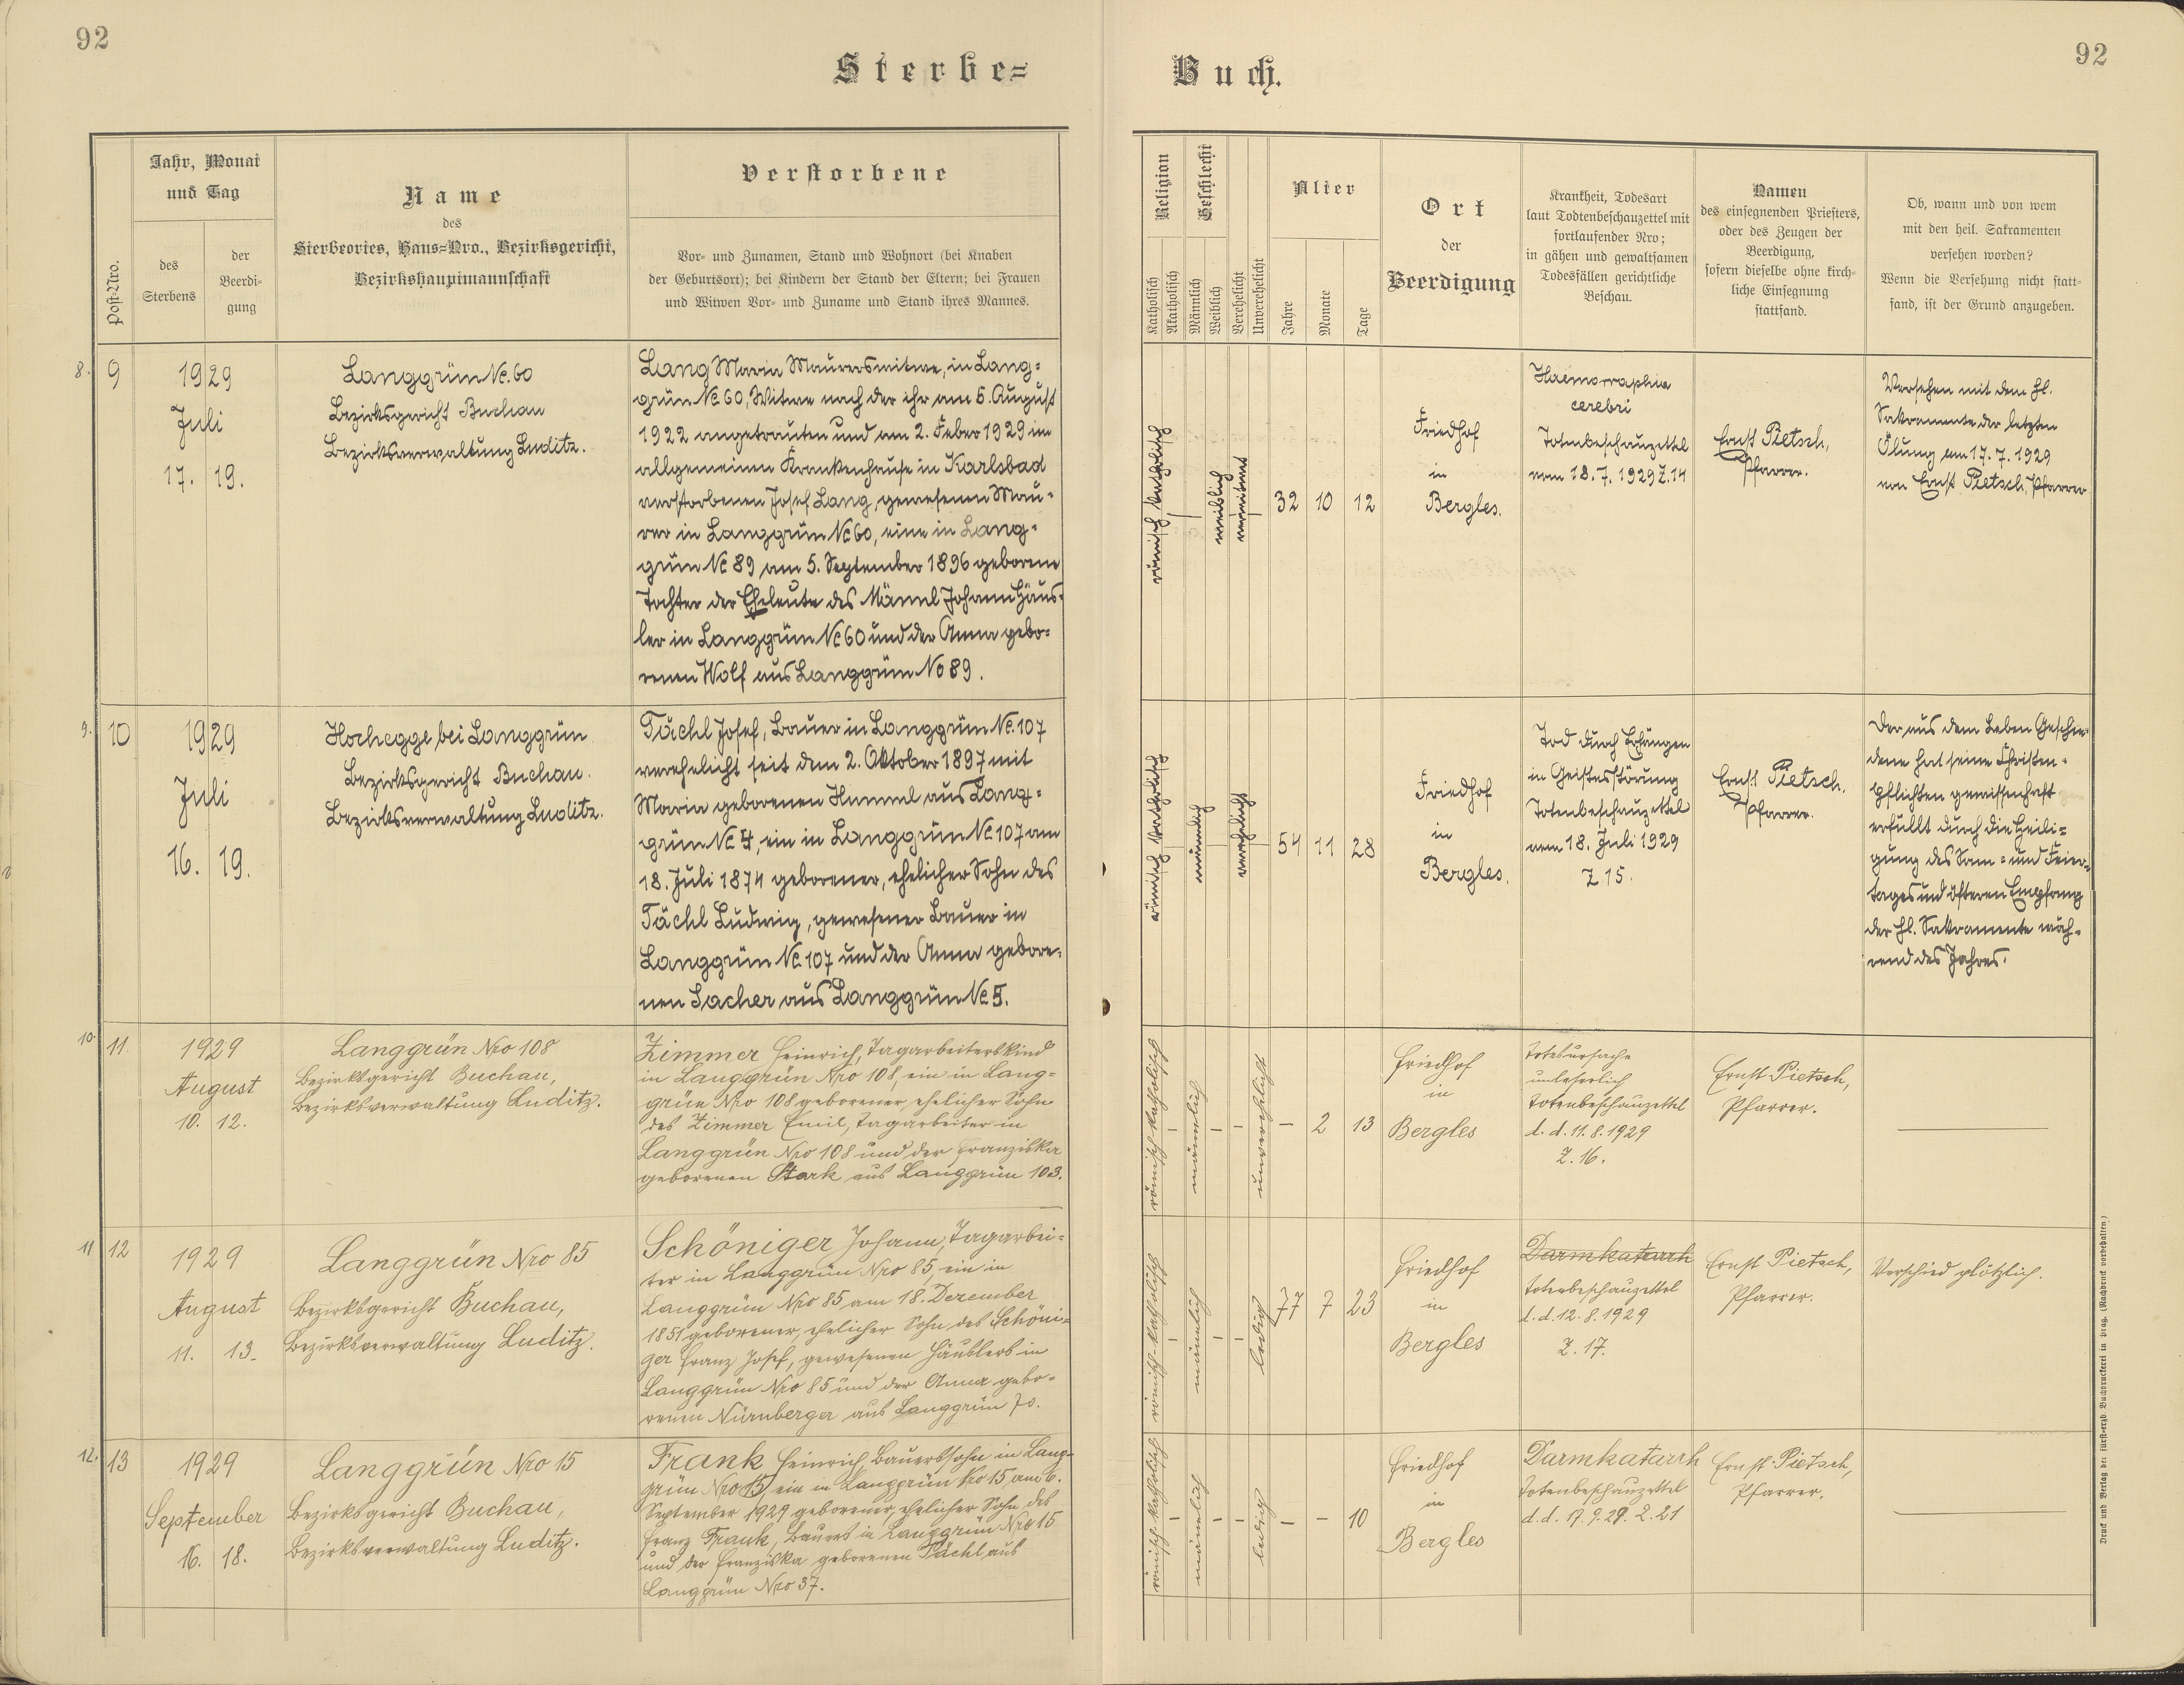 92
92
Sterbe=
Buch.
Post-Nro.
Jahr, Monat
und Tag
des
Sterbens
der
Beerdi-
gung
Name
des
Sterbeortes, Haus=Nro., Bezirksgericht,
Bezirkshauptmannschaft
Verstorbene
Vor- und Zunamen, Stand und Wohnort (bei Knaben
der Geburtsort); bei Kindern der Stand der Eltern; bei Frauen
und Witwen Vor- und Zuname und Stand ihres Mannes.
Religion
Katholisch
Akatholisch
Geschlecht
Männlich
Weiblich
Verehelicht
Unverehelicht
Alter
Jahre
Monate
Tage
Ort
der
Beerdigung
Krankheit, Todesart
laut Todtenbeschauzettel mit
fortlaufender Nro;
in gähen und gewaltsamen
Todesfällen gerichtliche
Beschau.
Namen
des einsegnenden Priesters,
oder des Zeugen der
Beerdigung,
sofern dieselbe ohne kirch-
liche Einsegnung
stattfand.
Ob, wann und von wem
mit den heil. Sakramenten
versehen worden?
Wenn die Versehung nicht statt-
fand, ist der Grund anzugeben.
8. 9
1929
Juli
17. 19.
Langgrün No. 60
Bezirksgericht Buchau
Bezirksverwaltung Luditz.
Lang Maria Maurerswitwe, in Lang=
grün No 60, Witwe nach der ihr am 5. August
1922 angetrauten und am 2. Feber 1929 im
allgemeinen Krankenhause in Karlsbad
verstorbenen Josef Lang, gewesenen Mau=
rer in Langgrün No 60, eine in Lang=
grün No 89 am 5. September 1896 geborene
Tochter der Eheleute des Männl Johann Häus=
ler in Langgrün No 60 und der Anna gebo=
renen Wolf aus Langgrün No 89.
römisch katholisch
weiblich
verwitwet
32 10 12
Friedhof
in
Bergles.
Haemorraphia
cerebri
Totenbeschauzettel
vom 18. 7. 1929 Z. 14
Ernst Pietsch,
Pfarrer.
Versehen mit dem hl.
Sakramente der letzten
Ölung am 17. 7. 1929
von Ernst Pietsch, Pfarrer
9. 10
1929
Juli
16. 19.
Hochegge bei Langgrün
Bezirksgericht Buchau.
Bezirksverwaltung Luditz.
Pächl Josef, Bauer in Langgrün No. 107
verehelicht seit dem 2. Oktober 1897 mit
Maria geborenen Hummel aus Lang=
grün No 4, ein in Langgrün No 107 am
18. Juli 1874 geborener, ehelicher Sohn des
Pächl Ludwig, gewesener Bauer in
Langgrün No 107 und der Anna gebore=
nen Lacher aus Langgrün No 5.
römisch katholisch
männlich
verehelicht
54 11 28
Friedhof
in
Bergles.
Tod durch Erhängen
in Geistesstörung
Totenbeschauzettel
vom 18. Juli 1929
Z 15.
Ernst Pietsch,
Pfarrer.
Der aus dem Leben Geschie=
dene hat seine Christen=
pflichten gewissenhaft
erfüllt durch die Heili=
gung des Sonn= und Feier=
tages und öfteren Empfang
der hl. Sakramente wäh=
rend des Jahres.
10. 11.
1929
August
10. 12.
Langgrün Nro 108
Bezirksgericht Buchau,
Bezirksverwaltung Luditz.
Zimmer Heinrich, Tagarbeiterskind
in Langgrün Nro 108, ein in Lang=
grün Nro 108 geborener, ehelicher Sohn
des Zimmer Emil, Tagarbeiter in
Langgrün Nro 108 und der Franziska
geborenen Stark aus Langgrün 103.
römisch-katholisch
–
männlich
–
–
unverehelicht
– 2 13
Friedhof
in
Bergles
Todesursache
unleserlich
Totenbeschauzettel
d. d. 11. 8. 1929
Z. 16.
Ernst Pietsch,
Pfarrer.
11 12
1929
August
11. 13.
Langgrün Nro 85
Bezirksgericht Buchau,
Bezirksverwaltung Luditz.
Schöniger Johann, Tagarbei=
ter in Langgrün Nro 85, ein in
Langgrün Nro 85 am 18. Dezember
1851 geborener, ehelicher Sohn des Schöni=
ger Franz Josef, gewesenen Häuslers in
Langgrün Nro 85 und der Anna gebo=
renen Nürnberger aus Langgrün 70.
römisch-katholisch
–
männlich
–
–
ledig
77 7 23
Friedhof
in
Bergles
Darmkatarrh
Totenbeschauzettel
d. d. 12. 8. 1929
Z. 17.
Ernst Pietsch,
Pfarrer.
Verschied plötzlich.
12. 13
1929
September
16. 18.
Langgrün Nro 15
Bezirksgericht Buchau,
Bezirksverwaltung Luditz.
Frank Heinrich, Bauerssohn in Lang=
grün Nro 15, ein in Langgrün Nro 15, am 6.
September 1929 geborener, ehelicher Sohn des
Franz Frank, Bauers in Langgrün Nro 15
und der Franziska geborenen Pächl, aus
Langgrün Nro 37.
römisch-katholisch
–
männlich
–
–
ledig
– – 10
Friedhof
in
Bergles
Darmkatarrh
Totenbeschauzettel
d. d. 17. 9. 29. Z. 21
Ernst Pietsch,
Pfarrer.
Druck und Verlag der fürst-erzb. Buchdruckerei in Prag. (Nachdruck vorbehalten.)